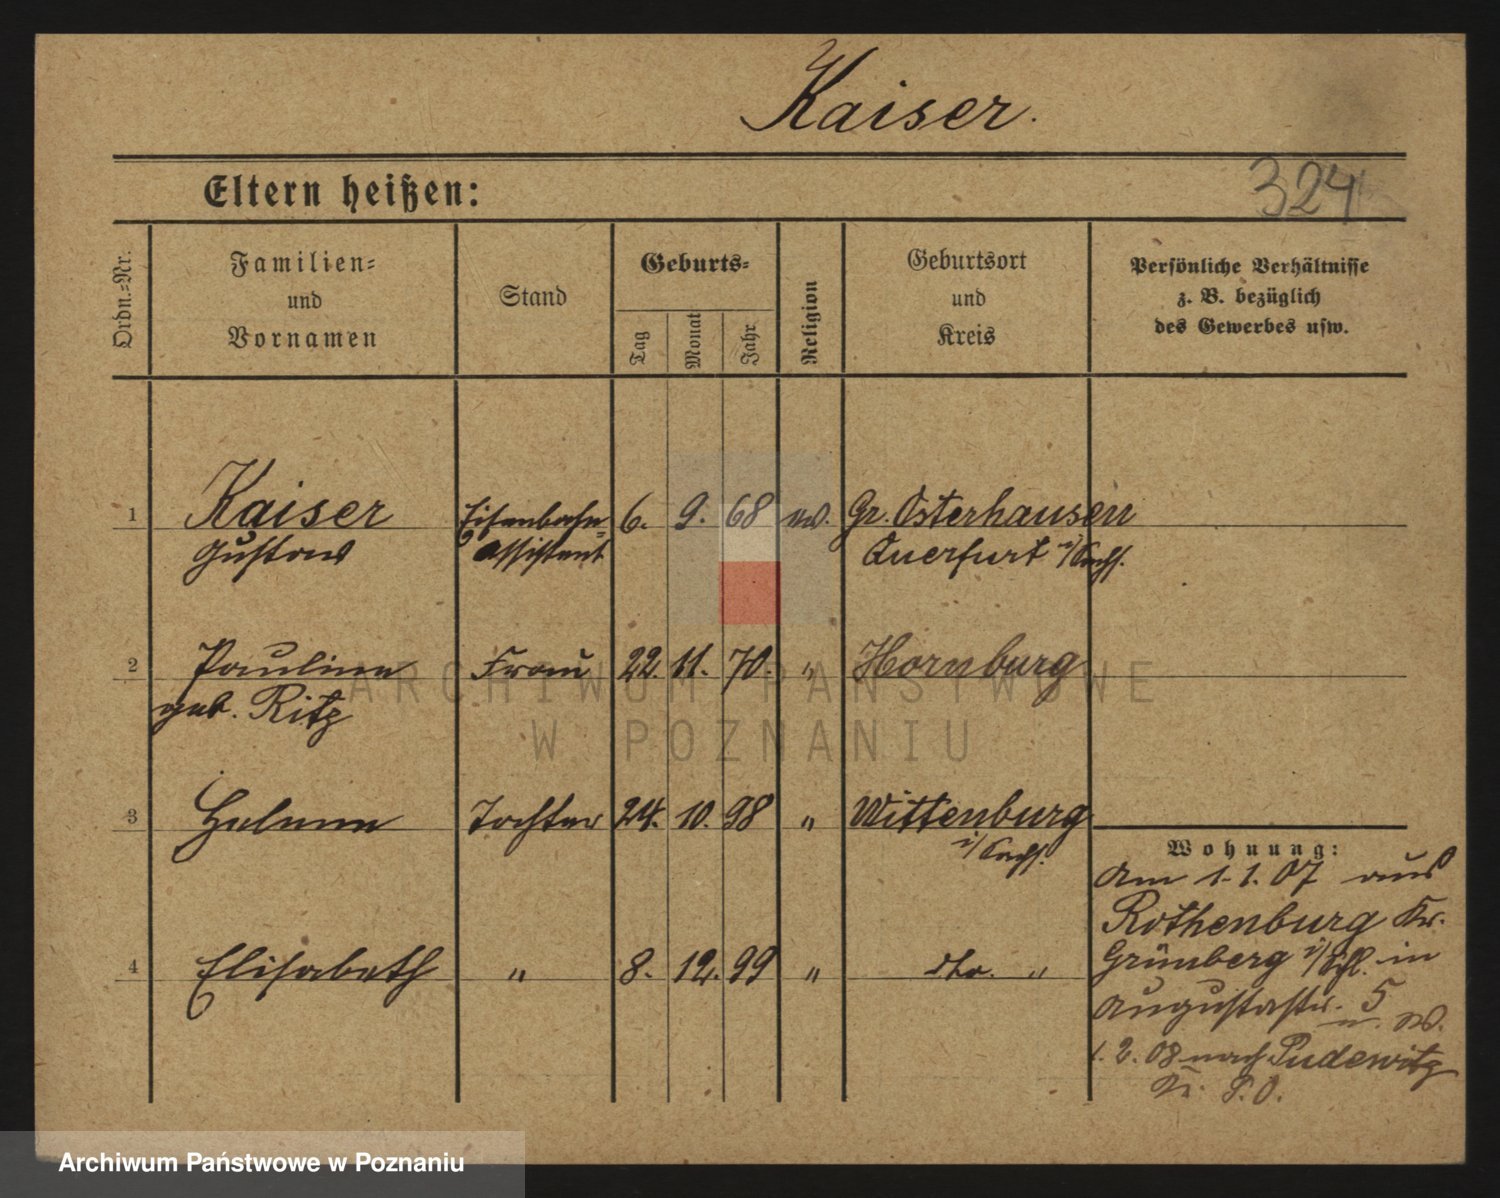 Kaiser.
Eltern heißen:
324
Ordn.-Nr.
Familien-
und
Vornamen
Stand
Geburts-
Tag
Monat
Jahr
Religion
Geburtsort
und
Kreis
Persönliche Verhältnisse
z. B. bezüglich
des Gewerbes usw.
1 Kaiser Eisenbahn- 6. 9. 68 ev. Gr. Osterhausen
Gustav Assistent Querfurt i/Sachs.
2 Pauline Frau 22. 11. 70. " Hornburg
geb. Ritz
ARCHIWUM PAŃSTWOWE
W POZNANIU
3 Helene Tochter 24. 10. 98 " Wittenburg
i/Sachs.
Wohnung:
am 1.1.07 aus
Rothenburg Kr.
4 Elisabeth " 8. 12. 99 " dto. "
Grünberg i/Schl. in
Augustastr. 5
1.2.08 nach Pudewitz
Kr. P.O.
Archiwum Państwowe w Poznaniu